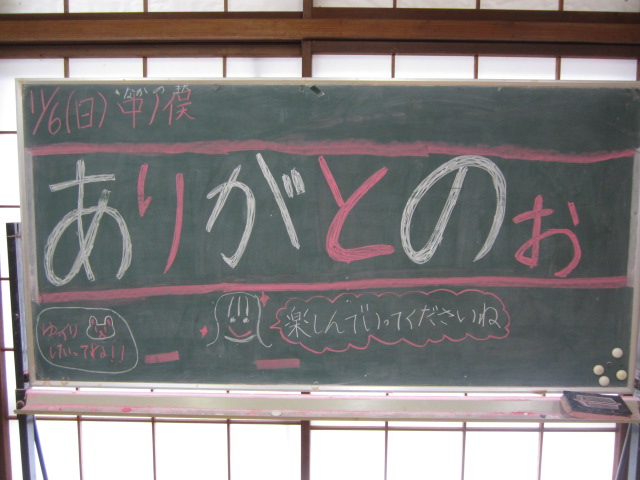 11/6(日)
ありがとのぉ
楽しんでいってください
ね
ゆっくり
していってね!!